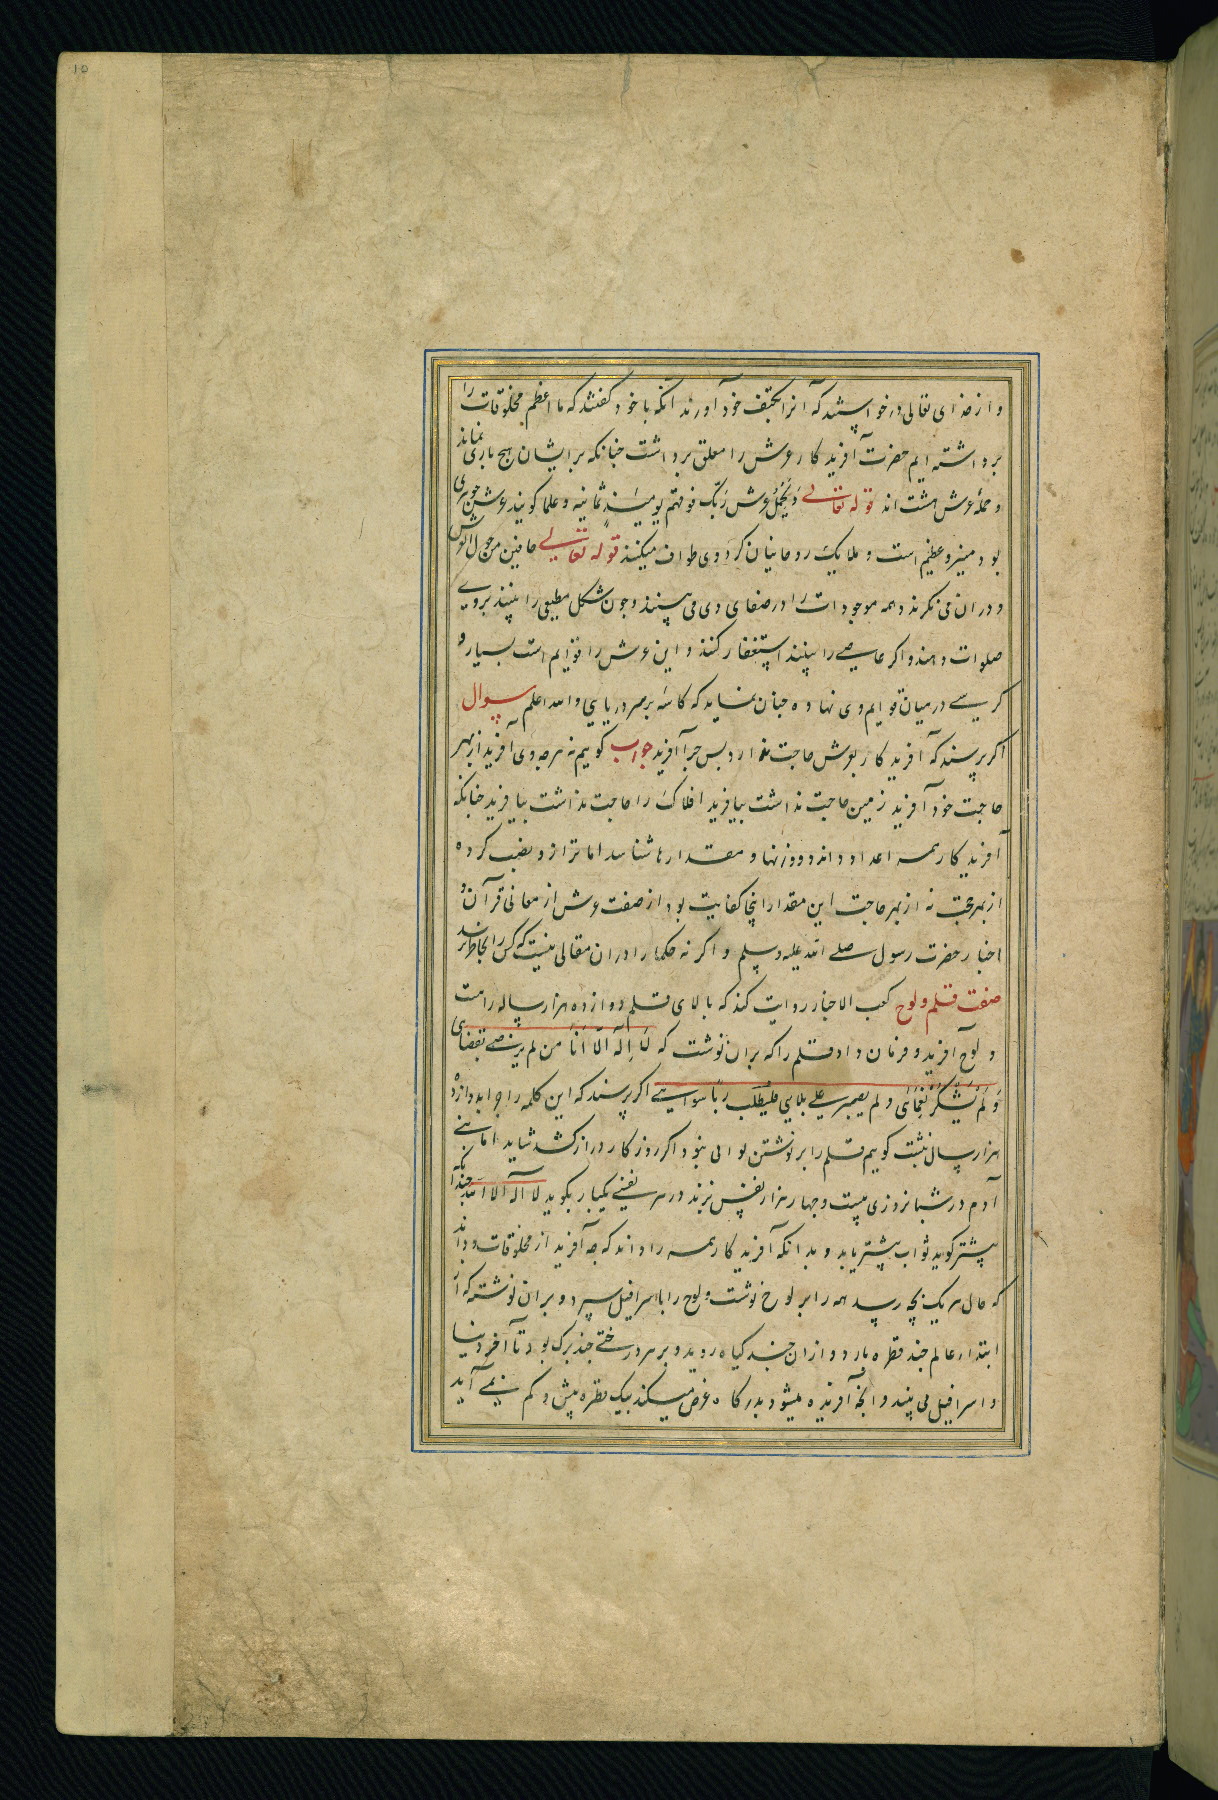 و از خدای تعالی درخواستند که آنرا بکتف خود آورند آنکه با خود گفتند که ما اعظم مخلوقات را
برداشته ایم حضرت آفریدکار عرش را معلق برداشت جنانکه بر ایشان هیج باری نماند
و حملۀ عرش هشت اند قوله تعالی وَیَحْمِلُ عرش رَبّک فوقهم یومَئذٍ ثمانیه و علما کویند عرش جوهری
بود منیر و عظیم است و ملایک روحانیان کرد وی طواف میکنند قوله تعالی حافین من حول العرش
و دران می نکرند و همه موجودات را در صفای وی می بینند و جون شکل مطیعی را بینند بر وی
صلوات دهند و اکر عاصیی را بینند استغفار کنند و این عرش را قوایم است بسیار و
کرسی در میان قوایم وی نهاده جنان نماید که کاسه بر سر دریایی والله اعلم سوال
اکر پرسند که آفریدکار بعرش حاجت ندارد بس جرا آفرید جواب کوییم نه هرجه وی آفرید از بهر
حاجت خود آفرید زمین حاجت نداشت بیافرید افلاک را حاجت نداشت بیافرید جنانکه
آفریدکار همه اعداد داند و وزنها و مقدارها شناسد اما ترازو نصب کرده
از بهر حجت نه از بهر حاجت این مقدار اینجا کفایت بود از صفت عرش از معانی قرآن و
اخبار حضرت رسول صلی الله علیه وسلم و اکر نه حکما را دران مقالی نیست که کس را بخاطر رسد
صفت قلم و لوح کعب الاحبار روایت کند که بالای قلم دوازده هزار ساله راهست
و لوح آفرید و فرمان داد قلم را که بران نوشت که لَا اِلَهَ اِلّا اَنَا مَن لم یرضی بقضای
وَ لَمْ یَشْکُرْ نَعْمَائی و لم یصبر علی بلایی فلیطلب ربّا سوایی اکر پرسند که این کلمه را جرا بدوازده
هزار سال نبشت کوییم قلم را بر نوشتن لوای نبود اکر روزکار دراز کشد شاید اما بنی
آدم در شبانروزی بیست و جهار هزار نفس بزند در هر نفسی یکبار بکوید لا اله الا الله جندانکه
بیشتر کوید ثواب بیشتر یابد و بدانکه آفریدکار همه را داند که جه آفرید از مخلوقات و داند
که حال هر یک بچه رسد همه را بر لوح نوشت و لوح را باسرافیل سپرد و بران نوشته که از
ابتداء عالم جند قطره بارد و ازان جند کیاه روید و بر هر درختی جند برک بود تا آخر دنیا
و اسرافیل می بیند و انجه آفریده میشود بدرکاه عرض میکند بیک قطره بیش و کم نمی آید